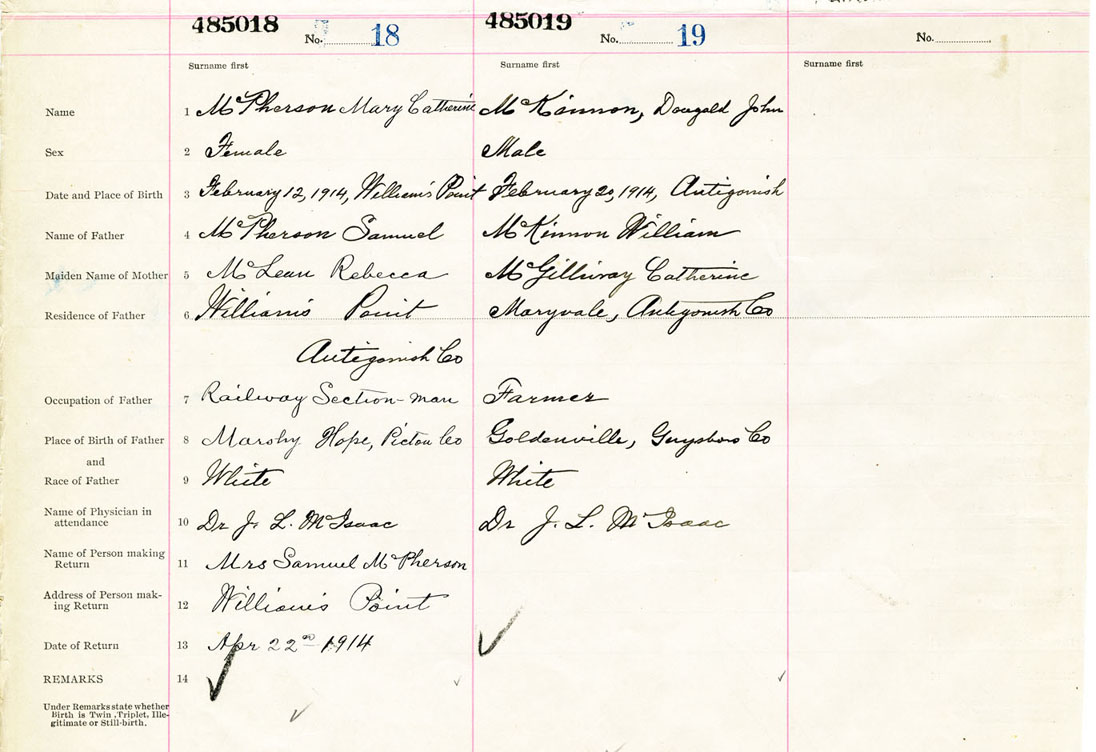 485018 No. 18 485019 No. 19 No.
Surname first Surname first Surname first
Name 1 McPherson Mary Catherine McKinnon, Dougald John
Sex 2 Female Male
Date and Place of Birth 3 February 12, 1914, William's Point February 20, 1914, Antigonish
Name of Father 4 McPherson Samuel McKinnon William
Maiden Name of Mother 5 McLean Rebecca McGillivray Catherine
Residence of Father 6 William's Point Maryvale, Antigonish Co
Antigonish Co
Occupation of Father 7 Railway Section-man Farmer
Place of Birth of Father 8 Marshy Hope, Pictou Co Goldenville, Guysboro Co
and
Race of Father 9 White White
Name of Physician in
attendance 10 Dr J. L. McIsaac Dr J. L. McIsaac
Name of Person making
Return 11 Mrs Samuel McPherson
Address of Person mak-
ing Return 12 William's Point
Date of Return 13 Apr 22nd 1914
REMARKS 14
Under Remarks state whether
Birth is Twin, Triplet, Ille-
gitimate or Still-birth.